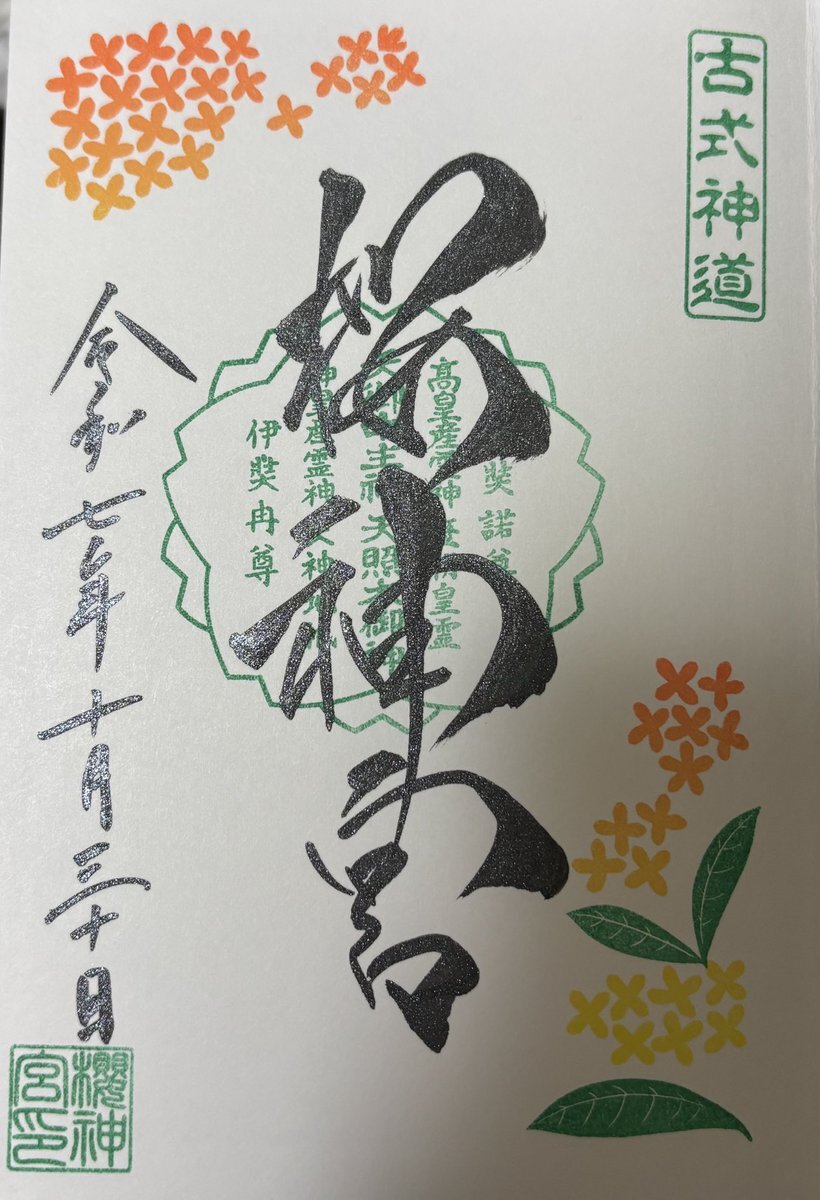 古式神道
桜神宮
奘諾尊
髙皇産霊神 皇霊
天御中主神 天照大御神
神皇産霊神 天神地祇
伊奘冉尊
令和七年十月三十日
櫻神宮印